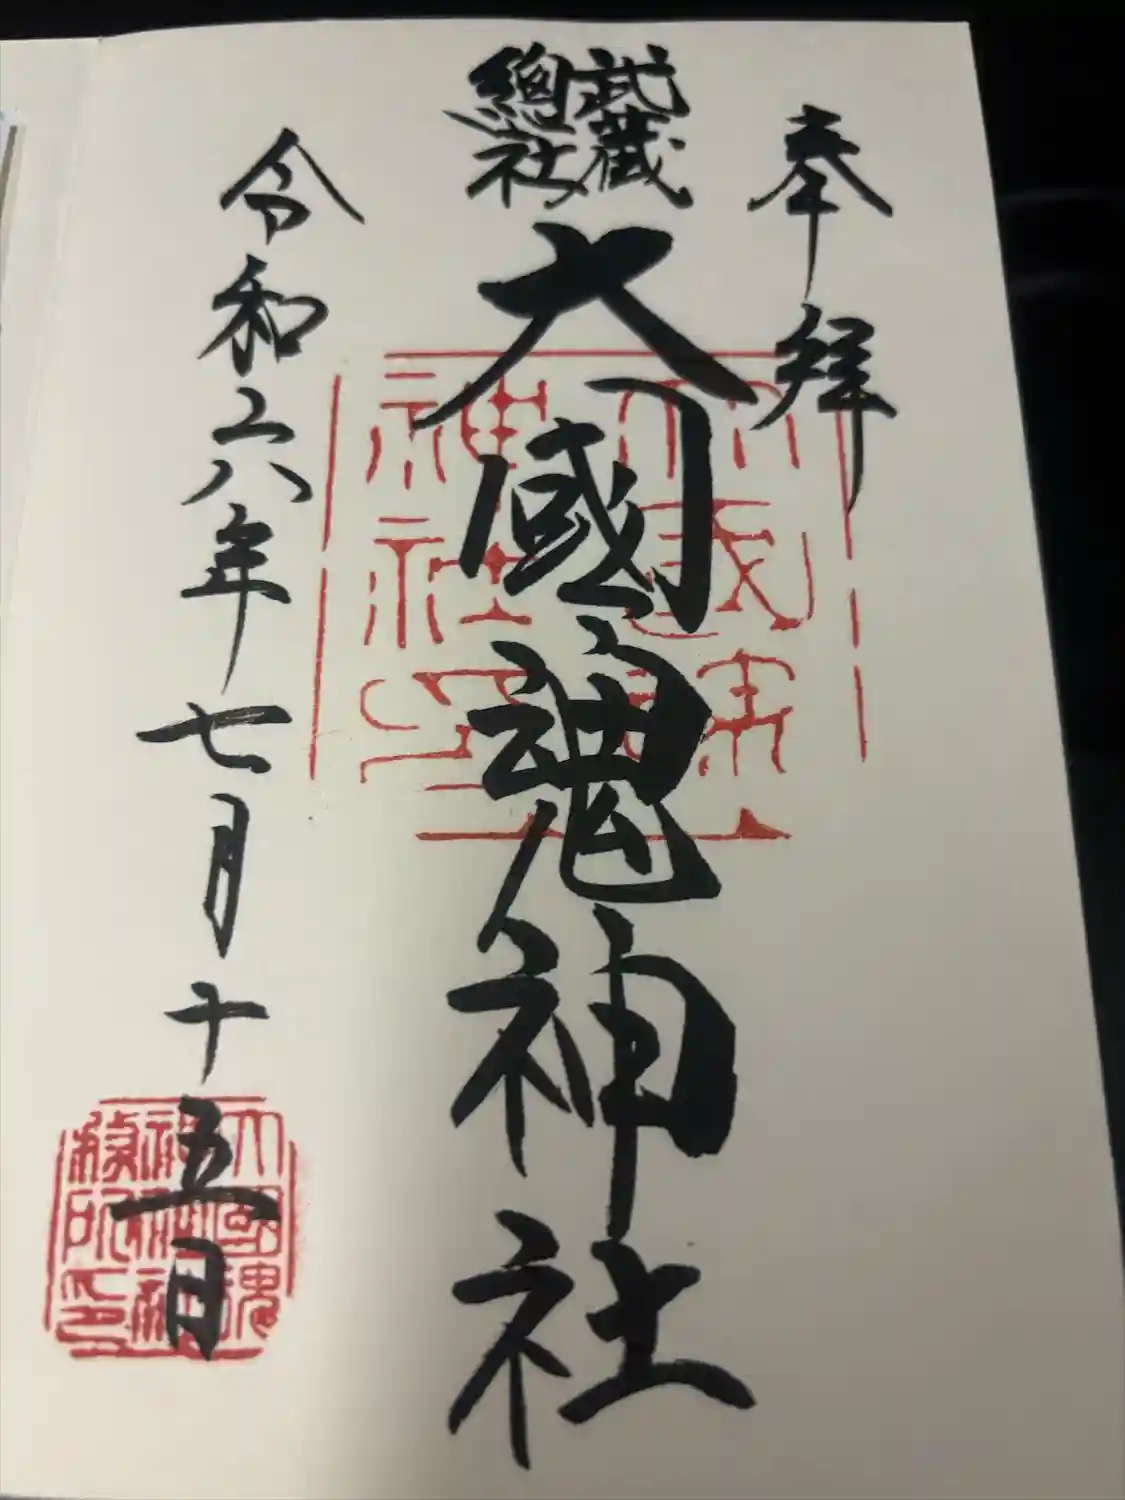 奉拝
武蔵
總社
大國魂神社
令和六年七月十五日
大國魂
神社
印
大國魂
神社
務所印